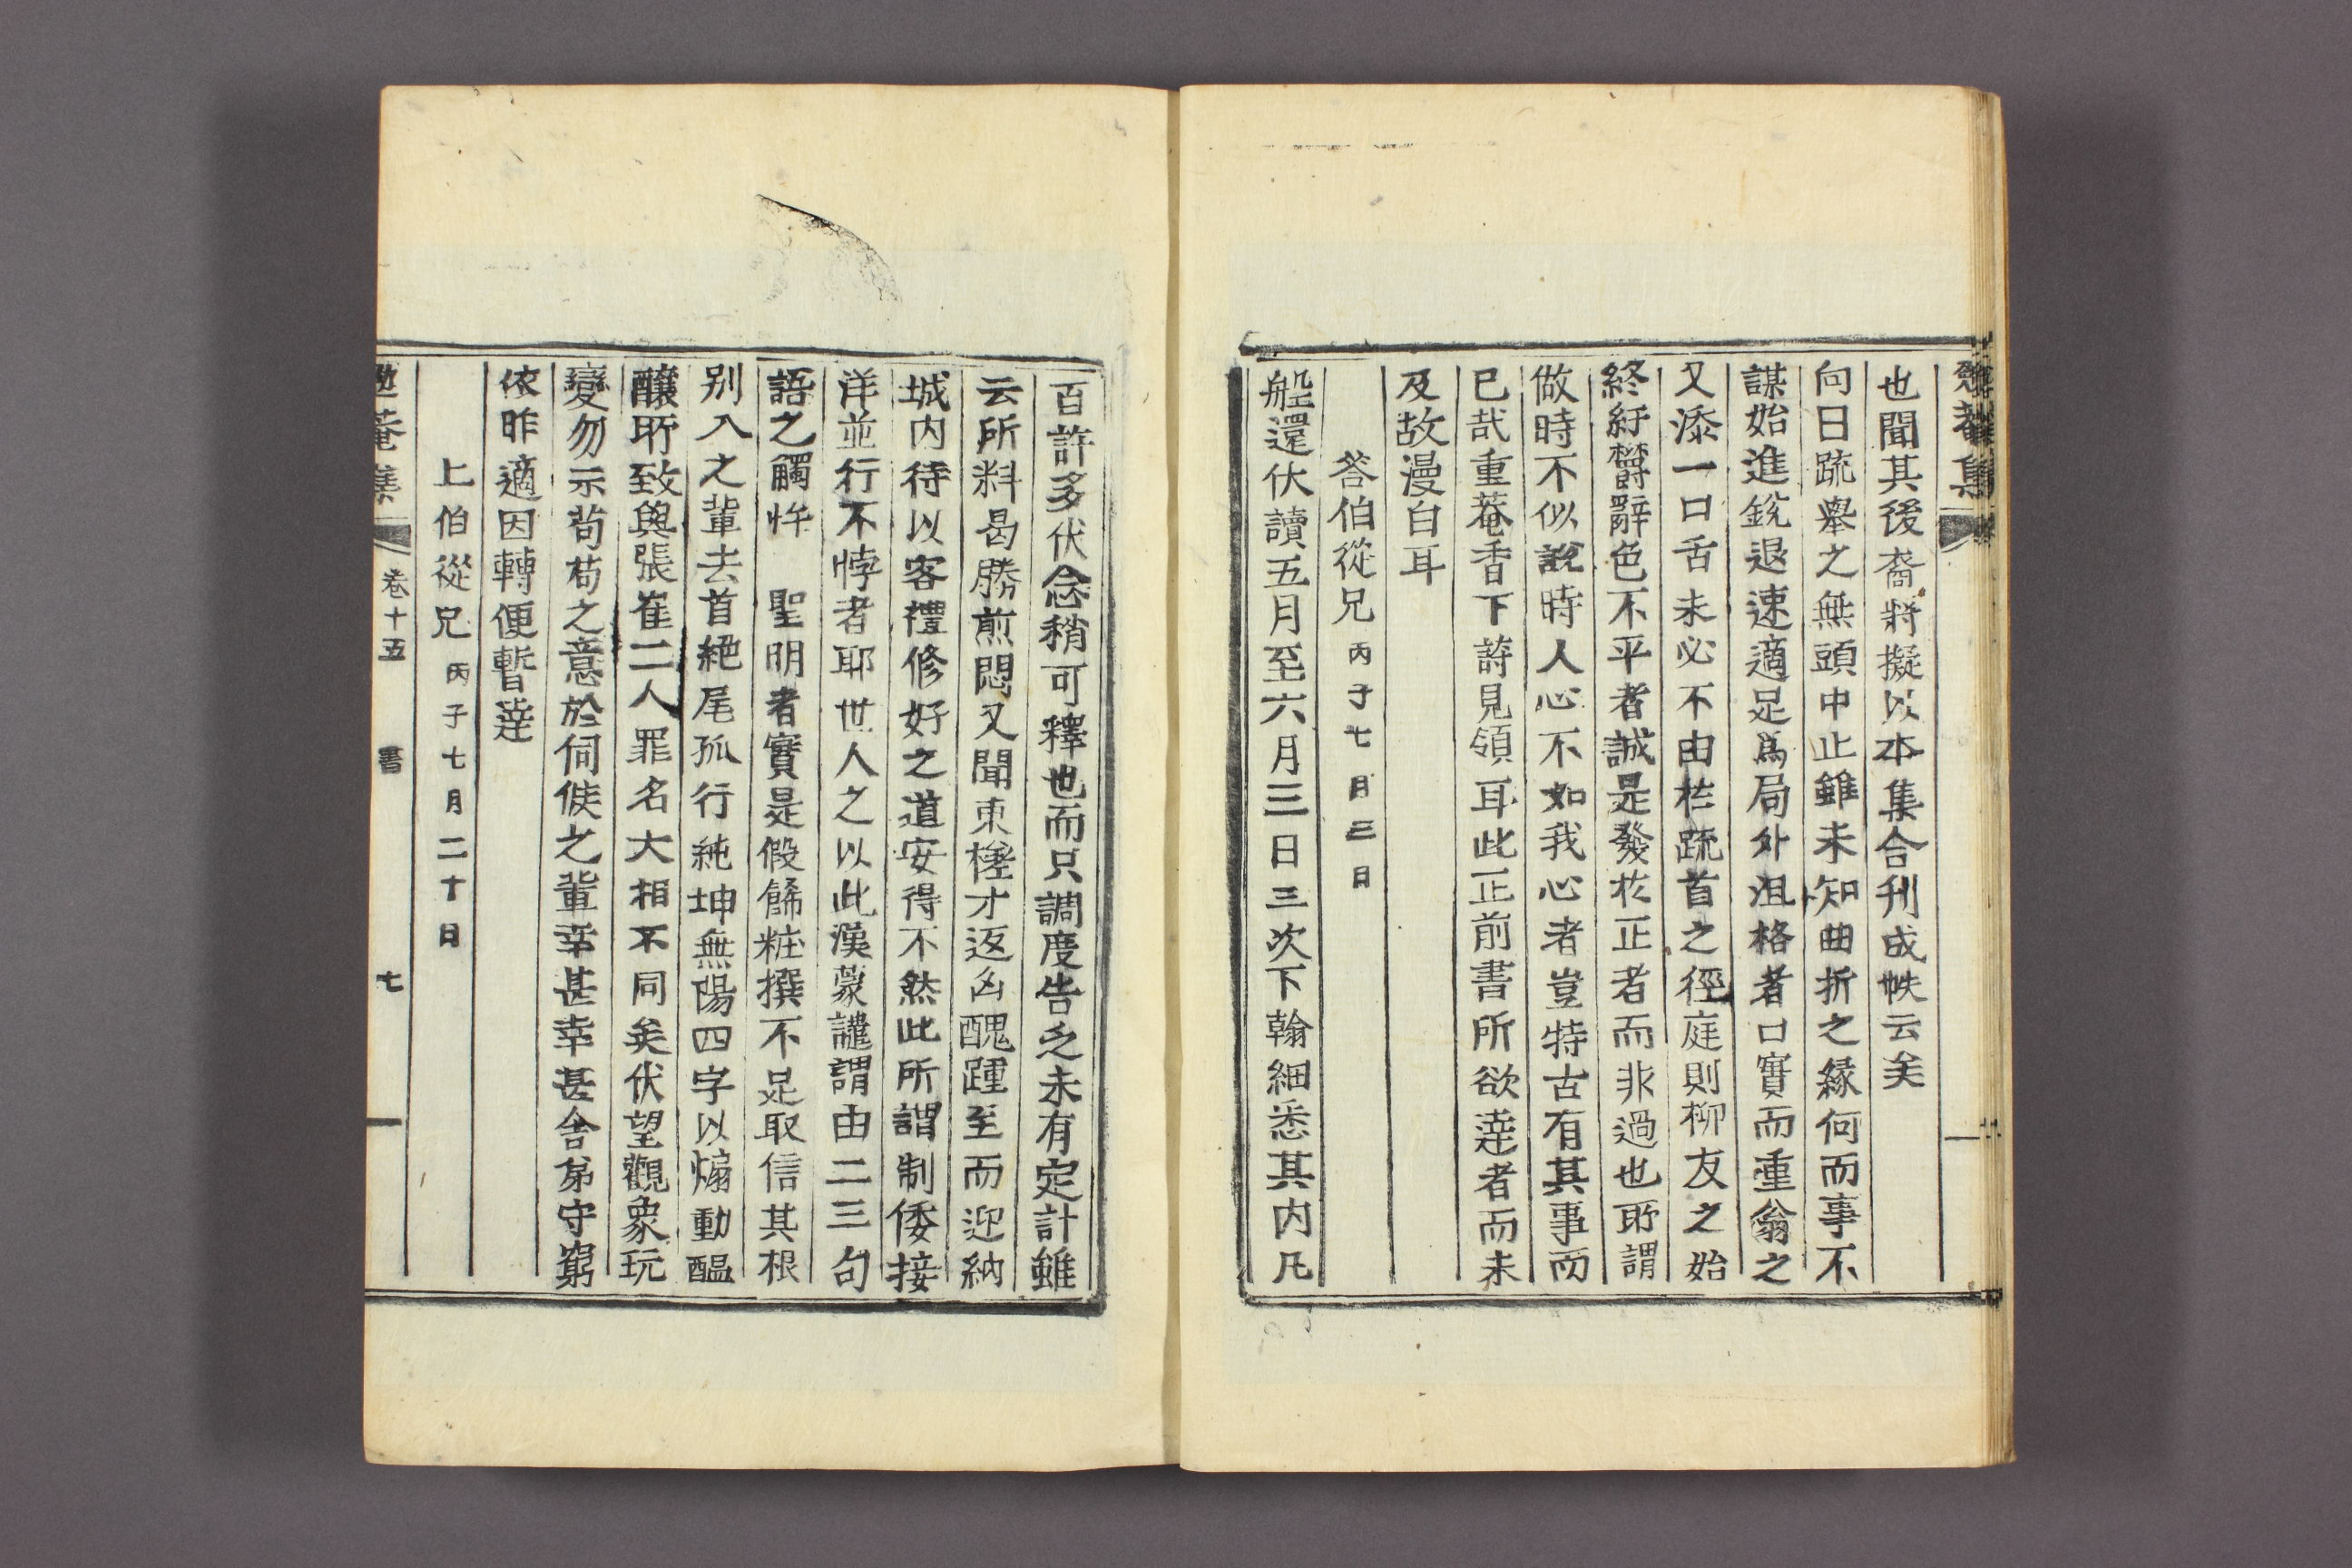 菴集
也聞其後裔將擬以本集合刊成帙云矣
向日疏舉之無頭中止雖未知曲折之緣何而事不
謀始進銳退速適足爲局外沮格者口實而重翁之
又添一口舌未必不由於疏首之徑庭則柳友之始
終紆欝辭色不平者誠是發於正者而非過也所謂
做時不似說時人心不如我心者豈特古有其事而
已哉重菴香下諒見領耳此正前書所欲達者而未
及故漫白耳
答伯從兄丙子七月三日
船還伏讀五月至六月三日三次下翰細悉其内凡
百許多伏念稍可釋也而只調度告乏未有定計雖
云所料曷勝煎悶又聞東槎才返凶醜踵至而迎納
城内待以客禮修好之道安得不然此所謂制倭接
洋並行不悖者耶世人之以此漢蒙讙謂由二三句
語之觸忤　聖明者實是假餙粧撰不足取信其根
别入之輩去首絕尾孤行純坤無陽四字以煽動醞
釀所致與張崔二人罪名大相不同矣伏望觀象玩
變勿示苟苟之意於伺候之輩幸甚幸甚舍弟守窮
依昨適因轉便暫達
上伯從兄丙子七月二十日
菴集　卷十五　書　七